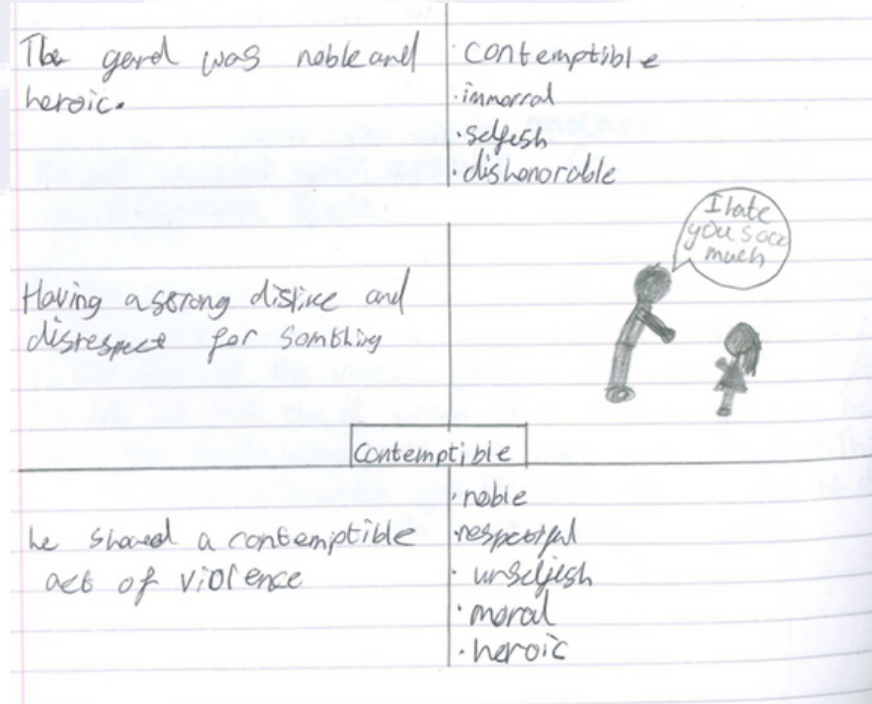 The gerd was noble and
heroic.
contemptible
·immorral
·selfesh
·dishonorable
I hate
you sooo
much
Having a strong dislike and
disrespect for somthing
contemptible
he showed a contemptible
act of violence
·noble
·respectful
·unselfish
·moral
·heroic